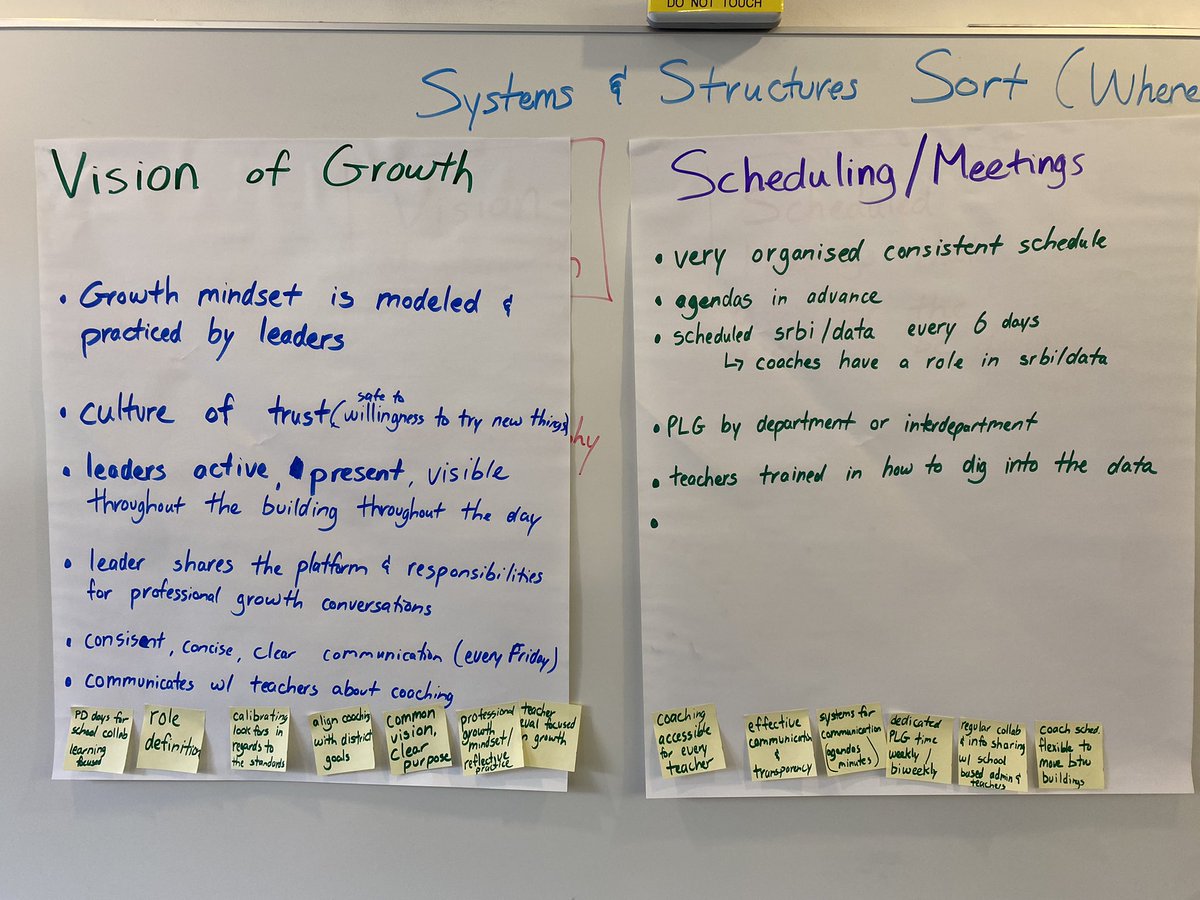 DO NOT TOUCH
Systems & Structures Sort (Where
Vision of Growth
• Growth mindset is modeled &
practiced by leaders
• culture of trust (willingness to try new things)
safe to
• leaders active, present, visible
throughout the building throughout the day
• leader shares the platform & responsibilities
for professional growth conversations
• consisent, concise, clear communication (every Friday)
• communicates w/ teachers about coaching
PD days for
school collab
learning
focused
role
definition
calibrating
look fors in
regards to
the standards
align coaching
with district
goals
common
vision,
clear
purpose
professional
growth
mindset/
reflective
practice
teacher
eval focused
on growth
Scheduling/Meetings
• very organised consistent schedule
• agendas in advance
• scheduled srbi/data every 6 days
↳ coaches have a role in srbi/data
• PLG by department or interdepartment
• teachers trained in how to dig into the data
•
coaching
accessible
for every
teacher
effective
communication
&
transparency
systems for
communication
(agendas
minutes)
dedicated
PLG time
weekly/
biweekly
regular collab
& info sharing
w/ school
based admin &
teachers
coach sched.
flexible to
move btw
buildings